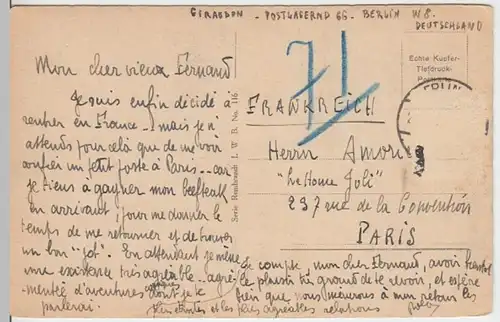 GIRABDON - POSTLAGERND GG - BERLIN W8.
DEUTSCHLAND
71
Echte Kupfer-
Tiefdruck-
Mon cher vieux Fernand
Je suis enfin décidé à
rentrer en France... mais je n'
attends pour celà que de me voir
confier un petit poste à Paris... car
je tiens à gagner mon beefteak
en arrivant; pour me donner le
temps de me retourner et de trouver
un bon "job". En attendant je mène
une existence très agréable... agré-
mentée d'aventures dont je te
parlerai.
Je compte, mon cher Fernand, avoir bientôt
le plaisir très grand de te revoir, et espère
bien que nous nouerons à mon retour les
plus étroites et les plus agréables relations
Serie Rembrandt I. W. B. No. 116.
FRANKREICH
Herrn Amori
"Le Home Joli"
237 rue de la Convention
PARIS